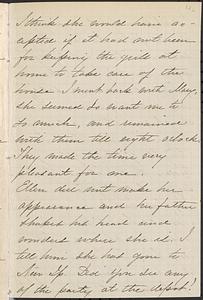 I think she would have ac-
cepted if it had not been
for keeping the girls at
home to take care of the
house. I went back with Mary,
she seemed to want me to
so much, and remained
with them till eight o'clock.
They made the time very
pleasant for me.
Ellen did not make her
appearance and her father
shakes his head and
wonders where she is. I
tell him she had gone to
New Did you see any
of the party at the depot?